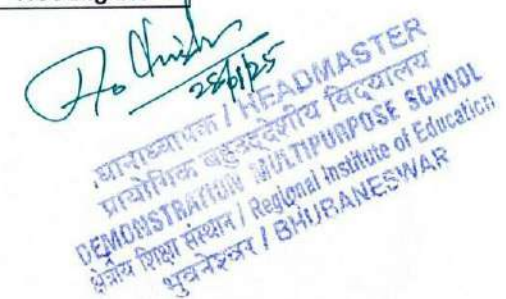 25/01/25
प्रधानाध्यापक / HEADMASTER
प्रायोगिक बहुउद्देशीय विद्यालय
DEMONSTRATION MULTIPURPOSE SCHOOL
क्षेत्रीय शिक्षा संस्थान / Regional Institute of Education
भुवनेश्वर / BHUBANESWAR